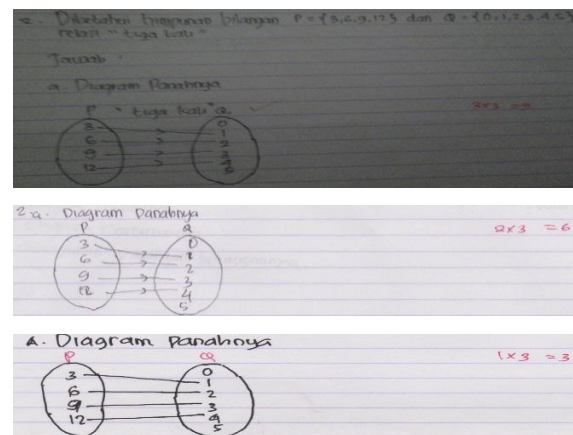 2. Diketahui himpunan bilangan P = {3,6,9,12} dan Q = {0,1,2,3,4,5}
relasi "tiga kali"
Jawab
a. Diagram Panahnya
P "tiga kali" Q
3 0
6 1
9 2
12 3
4
5
3x3 = 9
2 a. Diagram Panahnya
P Q
3 0
6 1
9 2
12 3
4
5
2x3 = 6
A. Diagram Panahnya
P Q
3 0
6 1
9 2
12 3
4
5
1x3 = 3